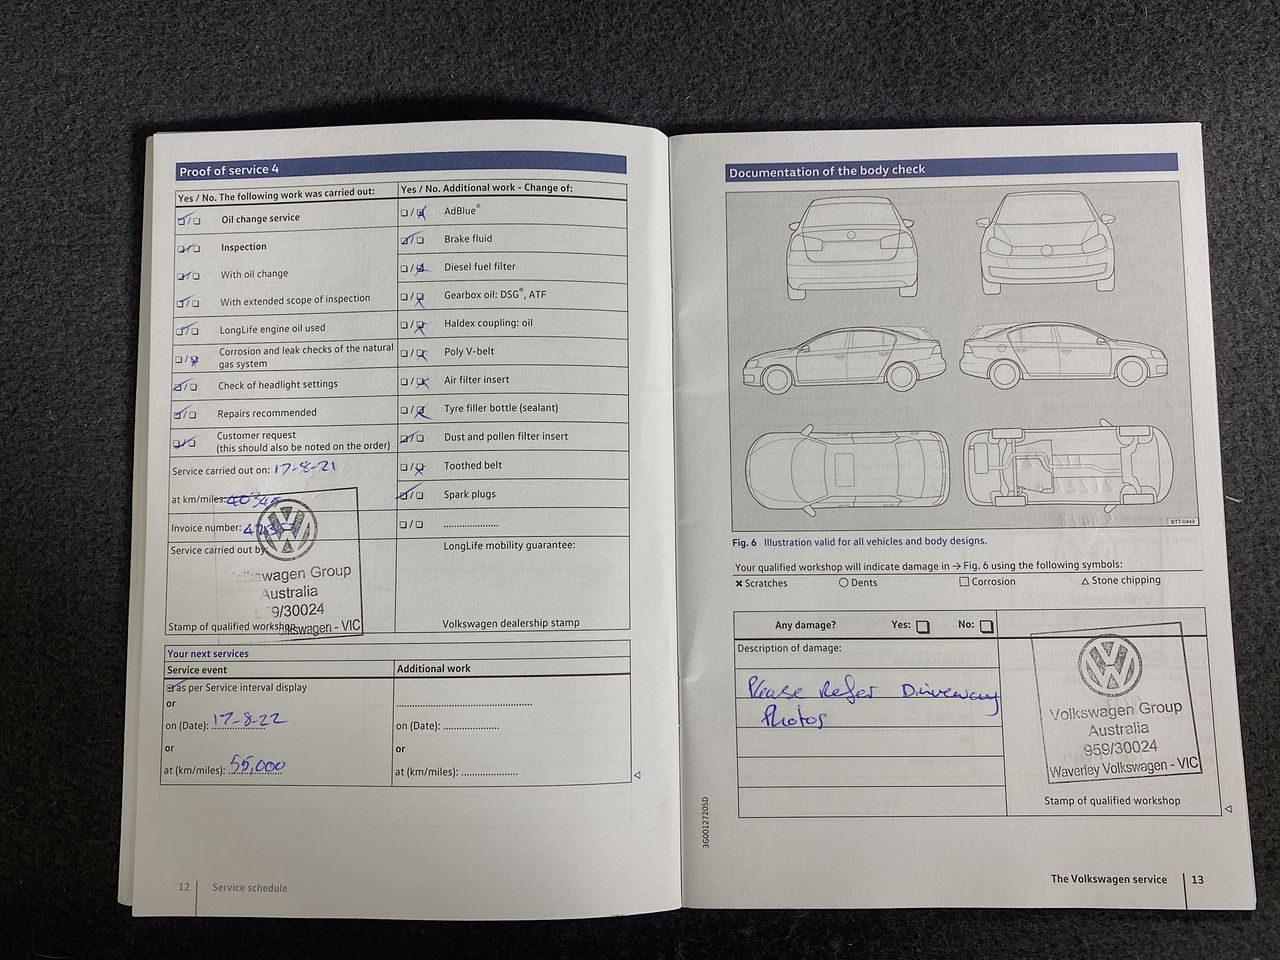 Proof of service 4
Yes / No. The following work was carried out:
Oil change service
Inspection
With oil change
With extended scope of inspection
LongLife engine oil used
Corrosion and leak checks of the natural
gas system
Check of headlight settings
Repairs recommended
Customer request
(this should also be noted on the order)
Service carried out on: 17-8-21
at km/miles:
Invoice number:
Service carried out by:
Volkswagen Group
Australia
9/30024
Volkswagen - VIC
Stamp of qualified workshop
Yes / No. Additional work - Change of:
AdBlue®
Brake fluid
Diesel fuel filter
Gearbox oil: DSG®, ATF
Haldex coupling: oil
Poly V-belt
Air filter insert
Tyre filler bottle (sealant)
Dust and pollen filter insert
Toothed belt
Spark plugs
....................
LongLife mobility guarantee:
Volkswagen dealership stamp
Your next services
Service event
as per Service interval display
or
on (Date): 17-8-22
or
at (km/miles): 55,000
Additional work
on (Date): ....................
or
at (km/miles): ....................
12 Service schedule
Documentation of the body check
BTT-0449
Fig. 6 Illustration valid for all vehicles and body designs.
Your qualified workshop will indicate damage in → Fig. 6 using the following symbols:
× Scratches ○ Dents □ Corrosion △ Stone chipping
Any damage? Yes: □ No: □
Description of damage:
Please Refer Driveway
Photos
Volkswagen Group
Australia
959/30024
Waverley Volkswagen - VIC
Stamp of qualified workshop
3G0012720SD
The Volkswagen service 13